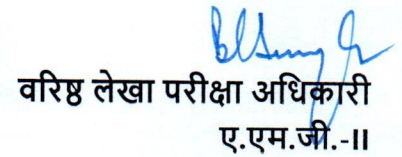 वरिष्ठ लेखा परीक्षा अधिकारी
ए.एम.जी.-II